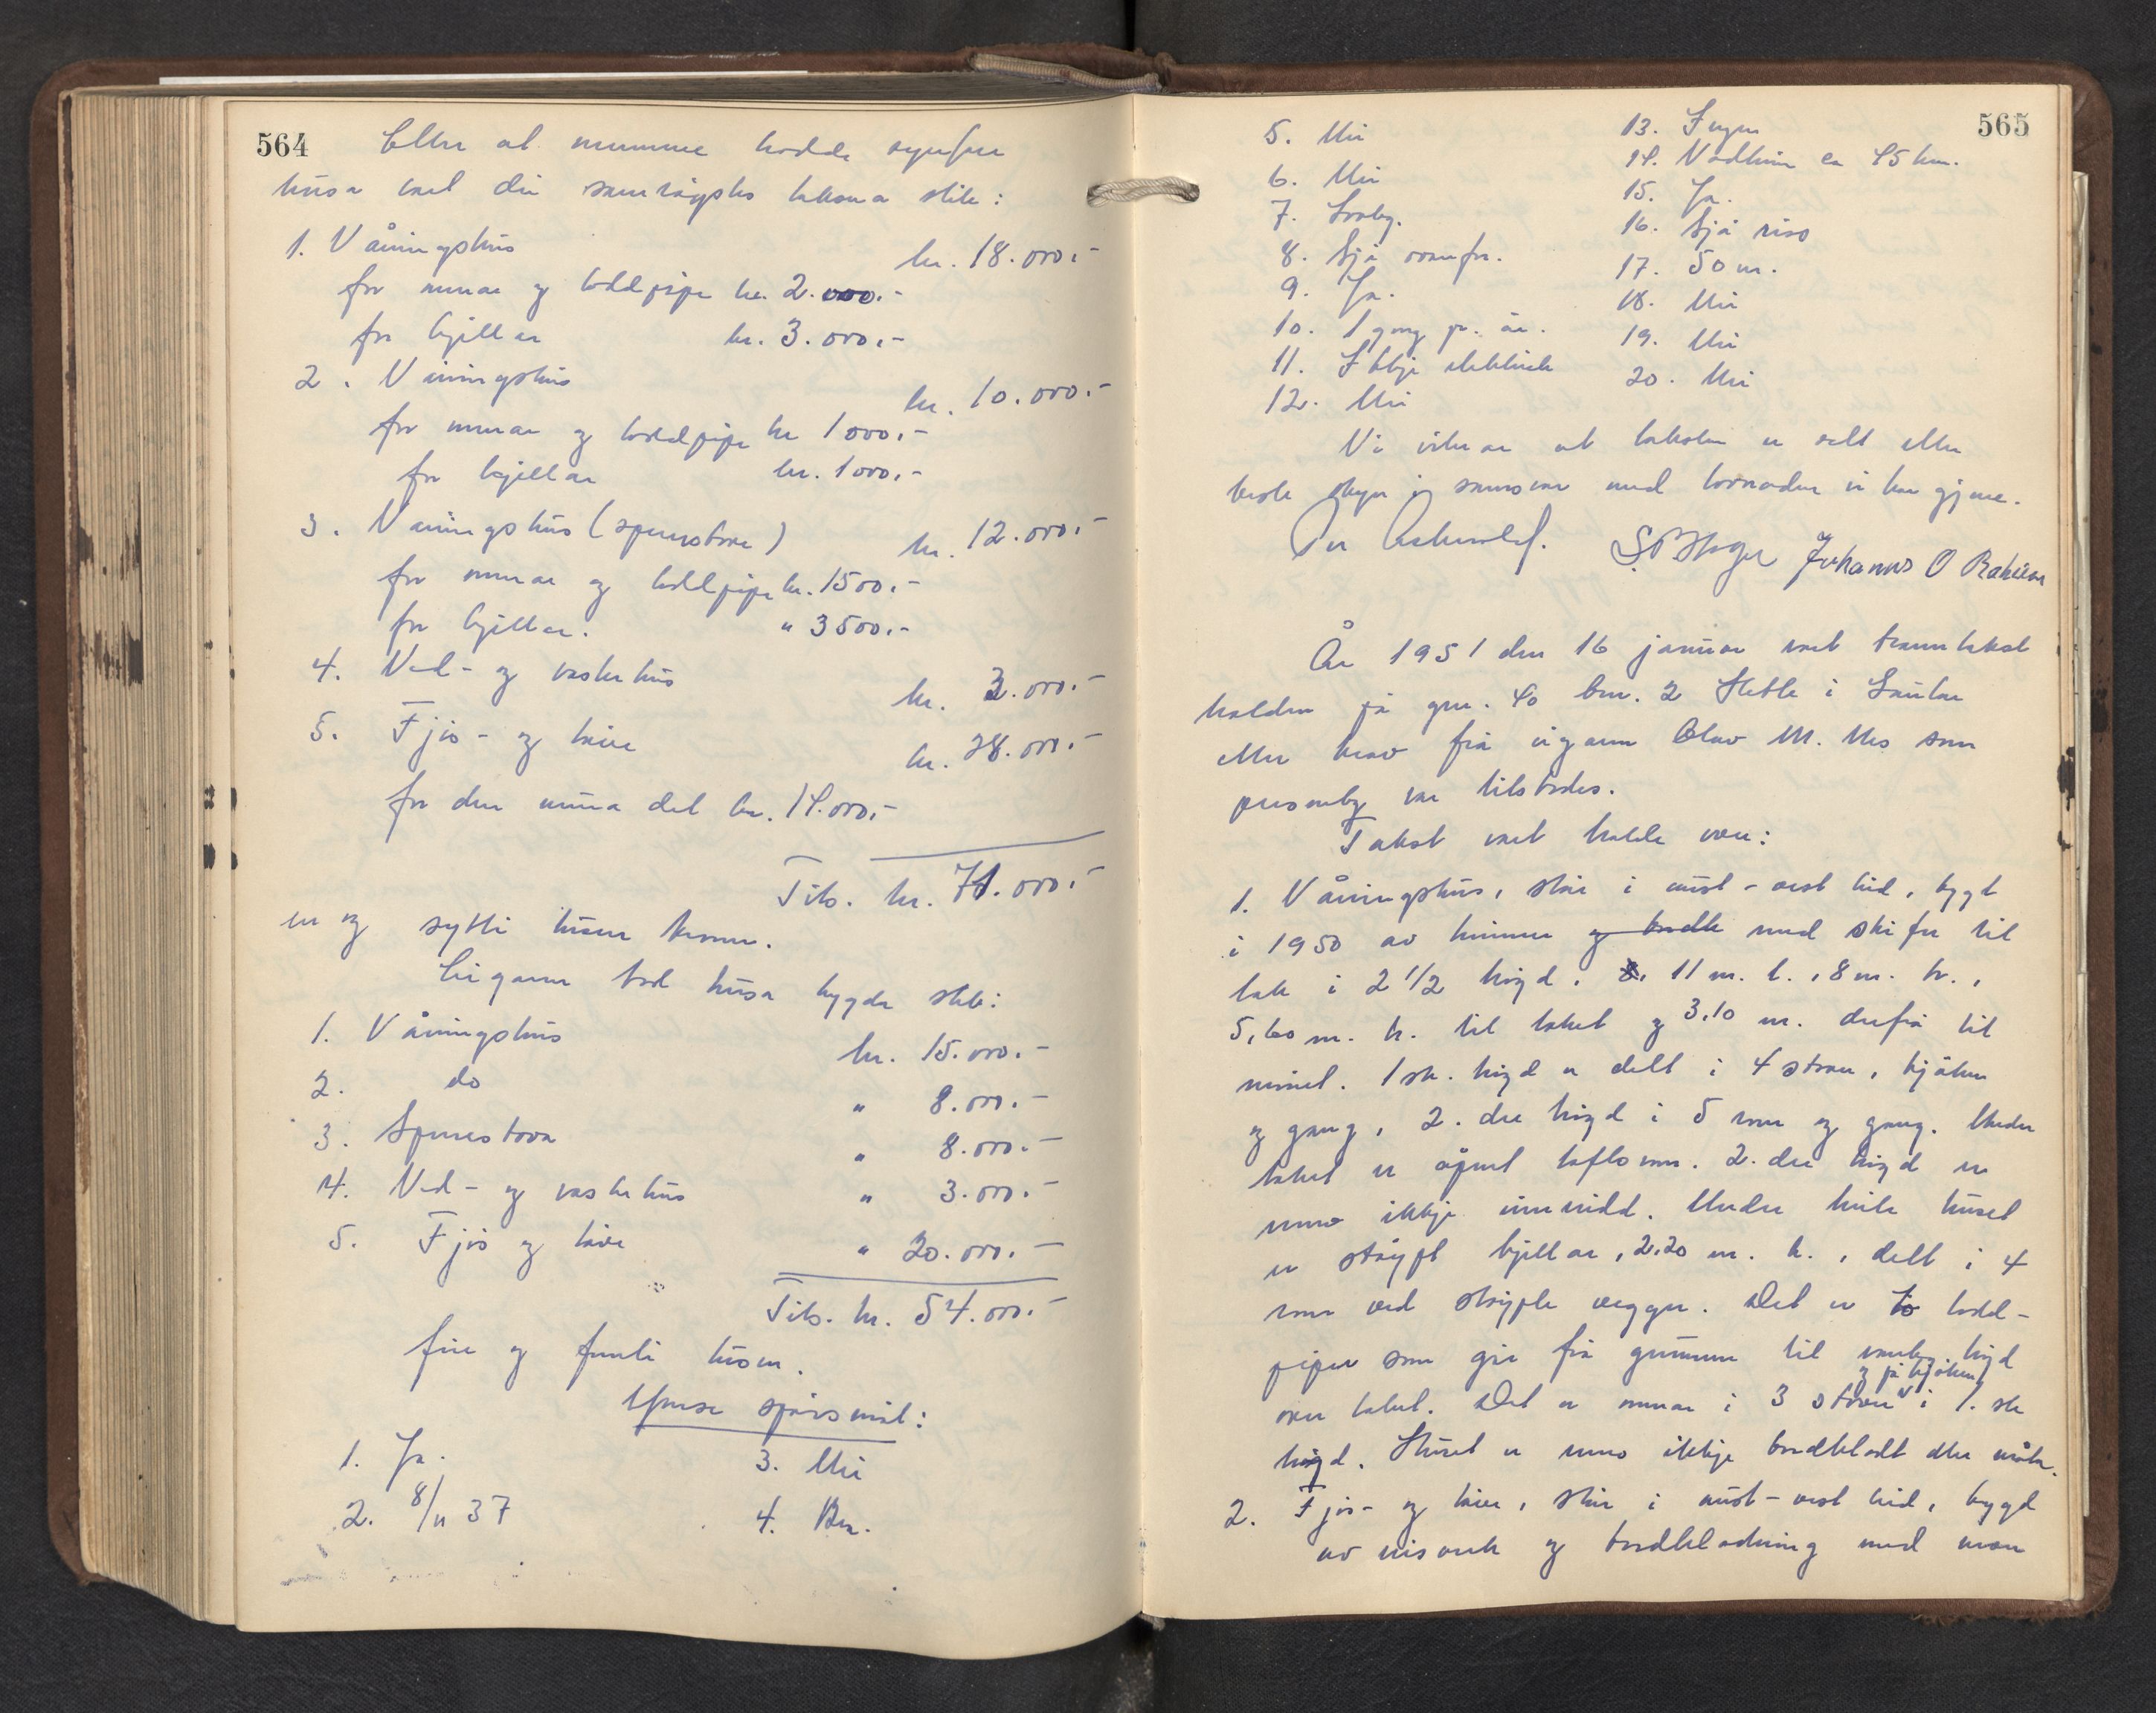 564
Etter at mennene hadde synfare
husa vart dei samrøystes taksera slik:
1. Våningshus kr. 18.000.-
for murar og loddpipe kr. 2.000.-
for kjellar kr. 3.000.-
2. Våningshus kr. 10.000.-
for murar og loddpipe kr 1000.-
for kjellar kr. 1000.-
3. Våningshus (sperrstove) kr. 12.000.-
for murar og loddpipe kr. 1500.-
for kjellar. " 3500.-
4. Ved- og vaskehus kr. 3.000.-
5. Fjøs- og løe kr. 28.000.-
for den mura del kr. 14.000.-
Tils. kr. 71.000.-
ein og sytti tusen kroner.
Eigaren bad husa trygda slik:
1. Våningshus kr. 15.000.-
2. do " 8.000.-
3. Sperrestova " 8.000.-
4. Ved- og vaskehus " 3.000.-
5. Fjøs og løe " 20.000.-
Tils. kr. 54.000.-
fire og femti tusen.
Ymse spørsmål:
1. Ja. 3. Nei
2. 8/11 37 4. Bra.
565
5. Nei
6. Nei
7. Lovleg.
8. Sjå ovanfor.
9. Ja.
10. 1 gong pr. år.
11. Ikkje elektrisk
12. Nei
13. Ingen
14. Vadheim ca 45 km.
15. Ja.
16. Sjå riss
17. 50 m.
18. Nei
19. Nei
20. Nei
Vi vitnar at taksten er sett etter
beste skjøn i samsvar med lovnaden vi har gjeve.
Johannes O
År 1951 den 16 januar vart branntakst
halden på gnr. 40 bnr. 2 Slette i Gaular
etter krav frå eigaren Olav M. Nes som
personleg var tilstades.
Takst vart halde over:
1. Våningshus, står i aust-vest leid, bygt
i 1950 av timmer og bordk med skifer til
tak i 2 1/2 høgd, 11 m. l., 8 m. br.,
5,60 m. h. til taket og 3,10 m. derfrå til
mønet. 1ste. høgd er delt i 4 stover, kjøken
og gang, 2. dre høgd i 5 rom og gang. Under
taket er åpent loftsrom. 2. dre høgd er
enno ikkje innreidd. Under heile huset
er støypt kjellar, 2,20 m. h., delt i 4
rom ved støypte vegger. Det er to lodd-
piper som går frå grunnen til vanleg høgd
over taket. Det er omnar i 3 stover og på kjøken i 1. ste
høgd. Huset er enno ikkje bordkledt eller måla.
2. Fjøs- og løe, står i aust-vest leid, bygd
av reisverk og bordkledning med